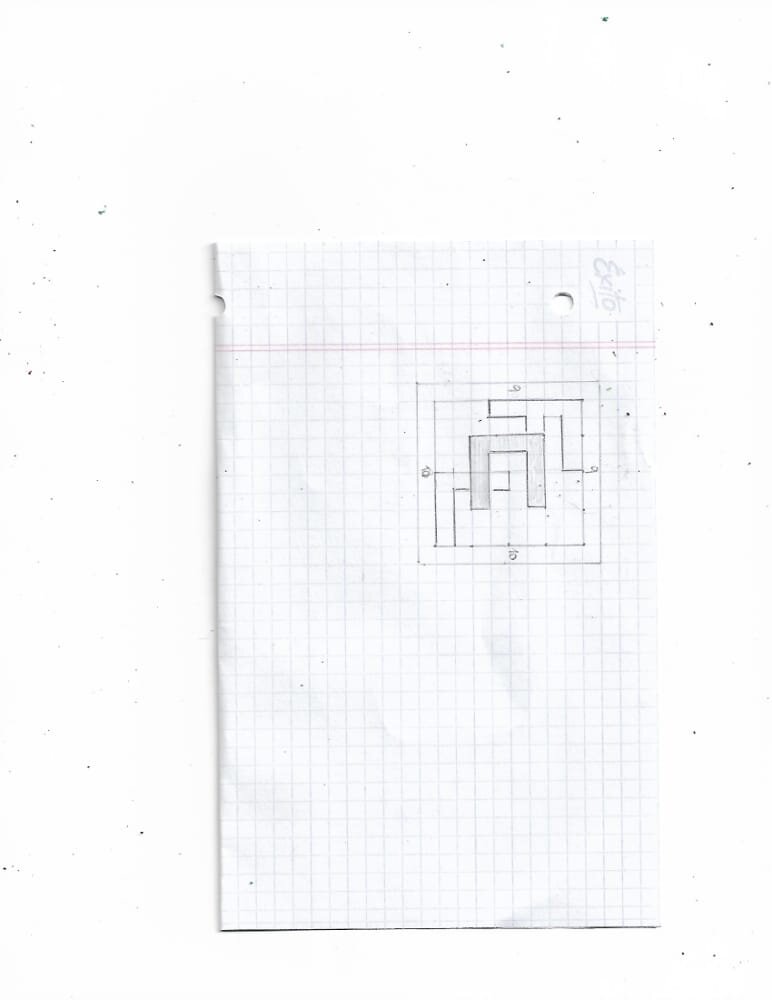 Éxito
9
9 10
10